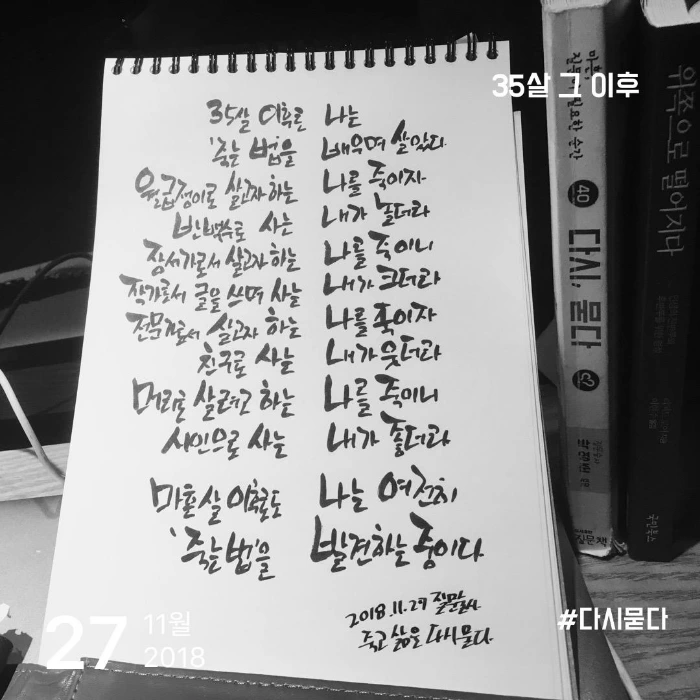 35살 그 이후
35살 이후로 나는
'죽는 법'을 배우며 살았다.
월급쟁이로 살고자 하는 나를 죽이자
반백수로 사는 내가 놀더라
장서가로서 살고자 하는 나를 죽이니
작가로서 글을 쓰며 사는 내가 크더라
전문가로서 살고자 하는 나를 죽이자
친구로 사는 내가 웃더라
머리로 살려고 하는 나를 죽이니
시인으로 사는 내가 좋더라
마흔 살 이후로도 나는 여전히
'죽는 법'을 발견하는 중이다
2018.11.27 질문술사
죽고 싶은 다시 묻다
27
11월
2018
#다시묻다
마흔,
질문이 필요한 순간
40
다시, 묻다
박영준
질문책
위쪽으로 떨어지다
국민북스